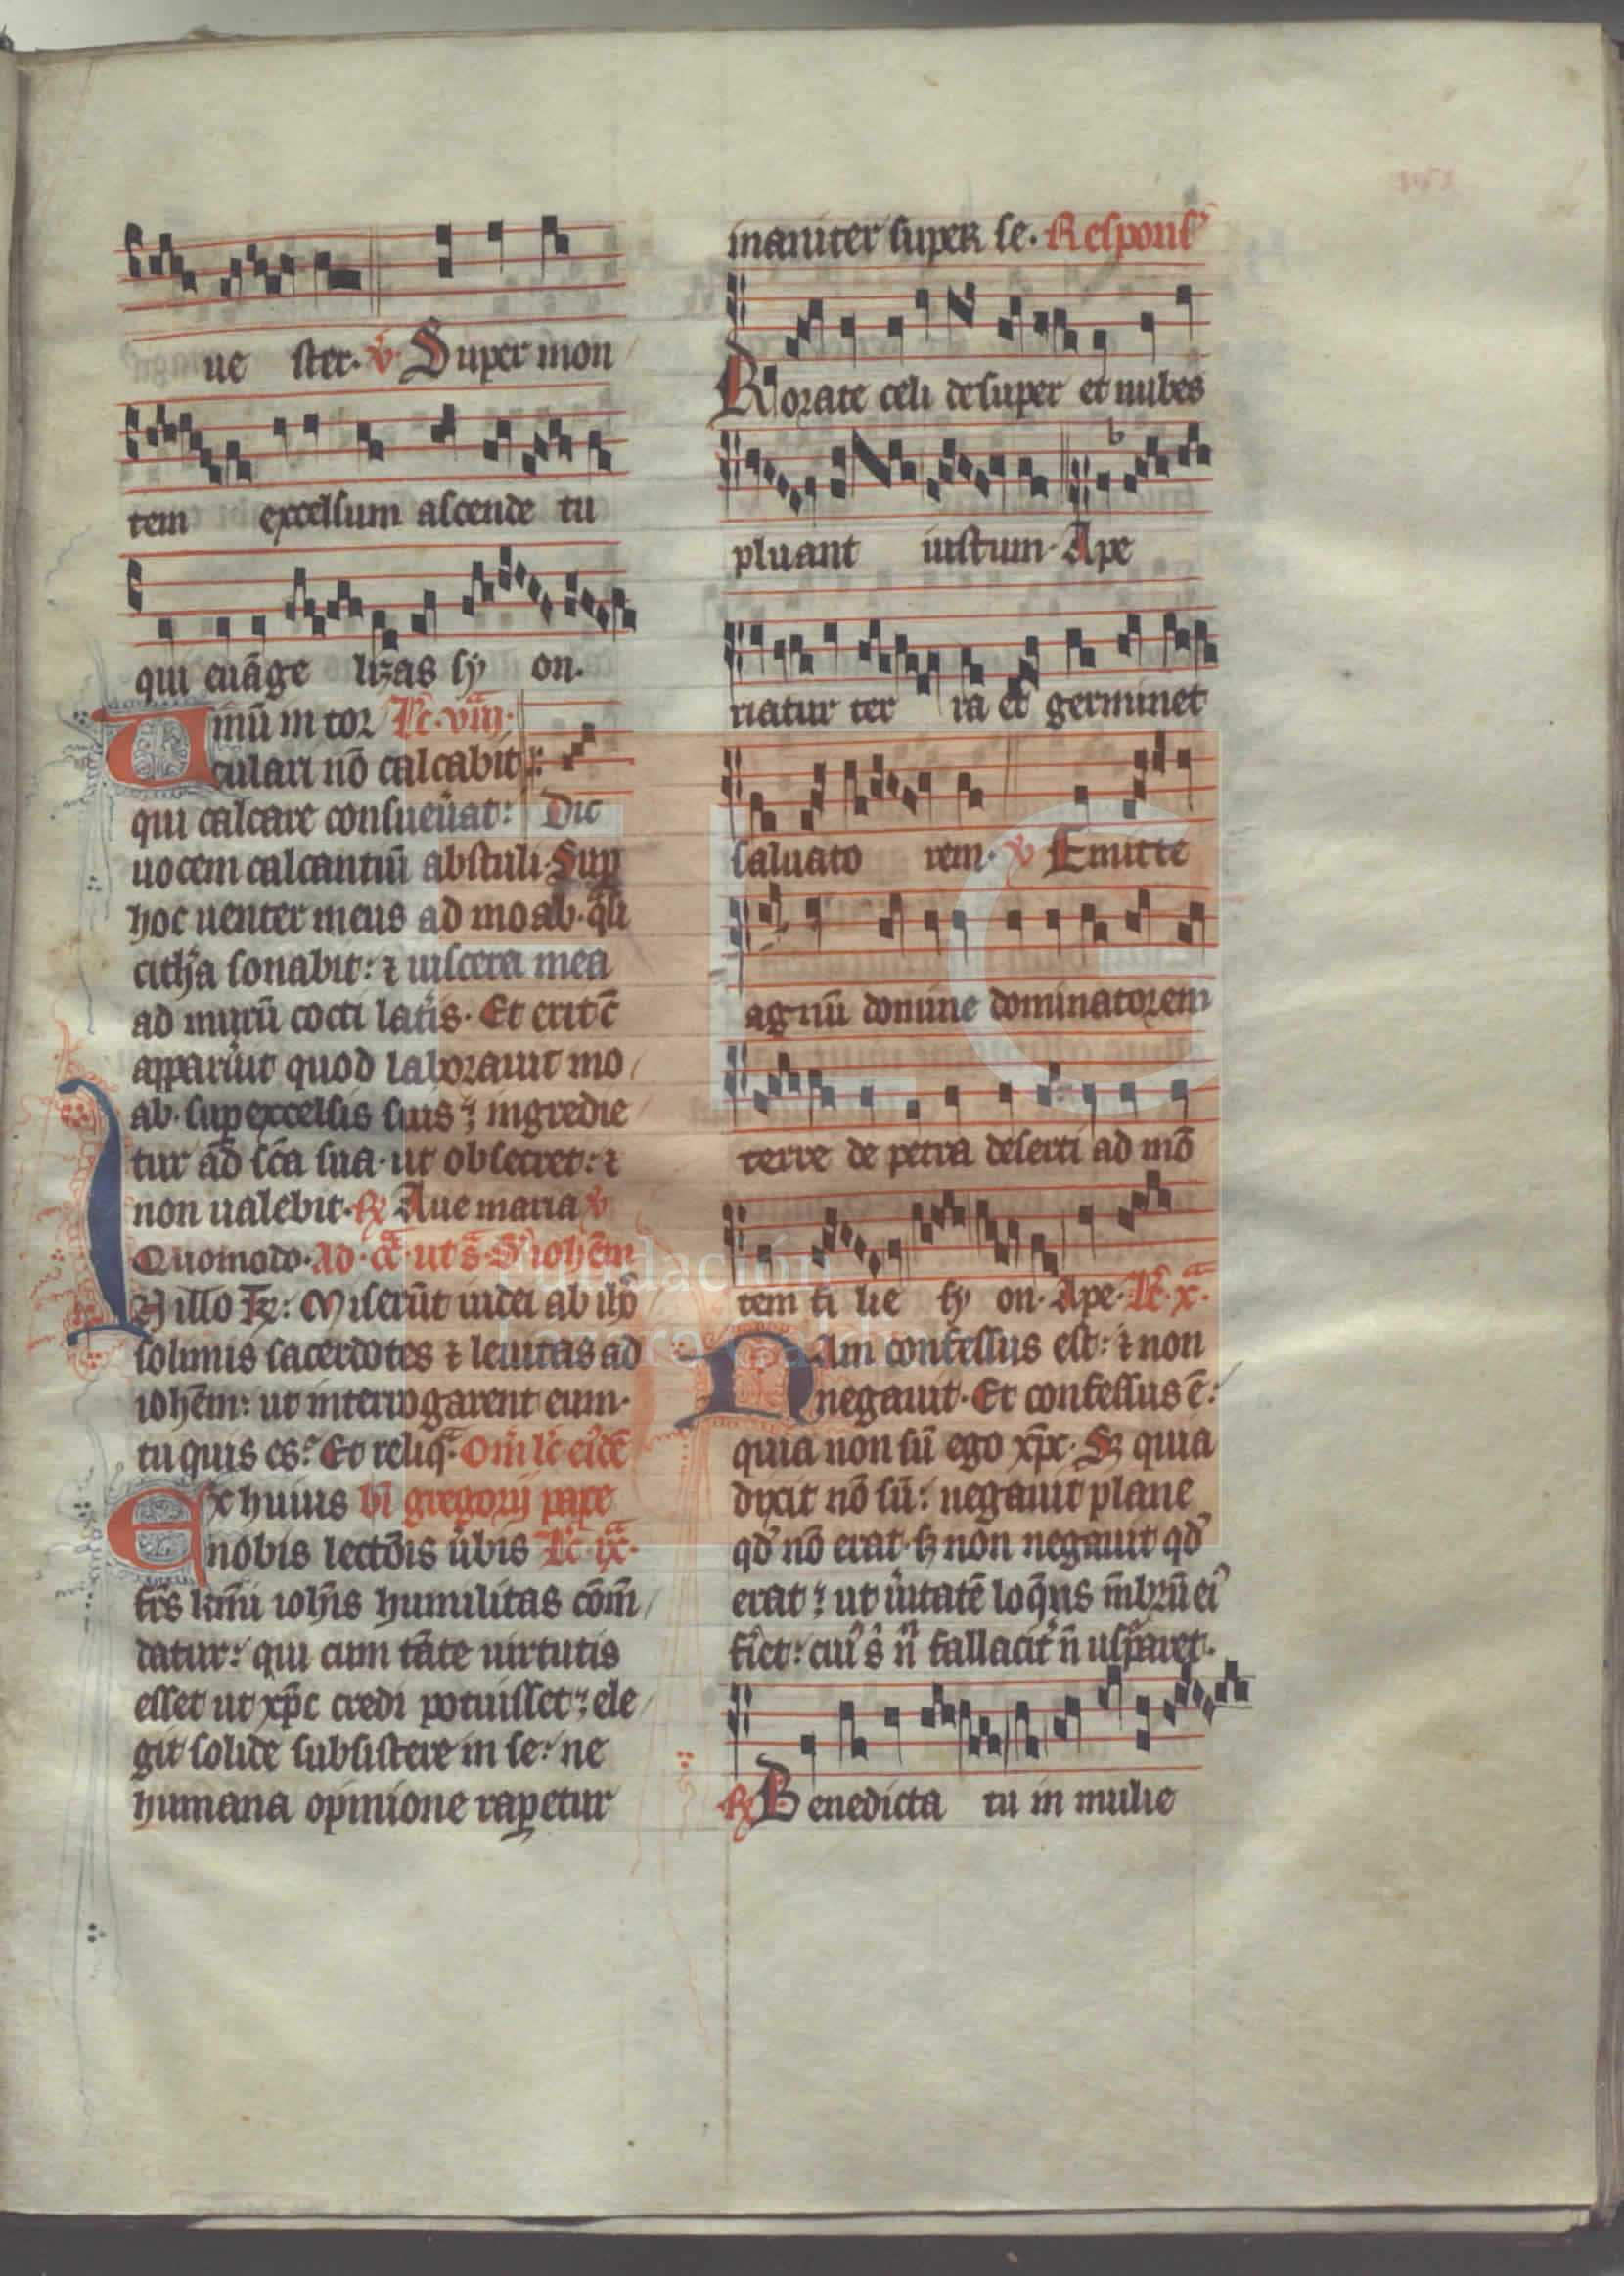 ue ster. ℣. Super mon
tem excelsum ascende tu
qui euāge lizas sẏ on.
Uinū in tor Lc̄. viij.
culari nō calcabit
qui calcare consueūat: Dic
uocem calcantiū abstuli. Sup
hoc uenter meus ad moab. q̄si
citħa sonabit: ⁊ uiscera mea
ad murū cocti lat̾is. Et erit c̄
apparu̾it quod laborauit mo
ab. sup excelsis suis: ingredie
tur ad sc̄a sua. ut obsecret: ⁊
non ualebit. ℟ Aue maria ℣
Quomodo. ad. ut s̄. iohēm
In illo Miserūt iudei ab
solimis sacerdotes ⁊ leuitas ad
iohēm: ut interrogarent eum.
tu quis es? Et reliq̄. Om̄l̄c ei̾dē
Ex huius bī gregorij pape
nobis lectōis u̾bis Lc̄. ix.
fr̄s kmī ioh̄is humilitas cōm̄
datur: qui cum tāte uirtutis
esset ut xp̄c credi potuisset: ele
git solide subsistere in se: ne
humana opinione rapetur
inaniter super se. Respons̾
Rorate celi desuper et nubes
pluant iustum. Ape
riatur ter ra et germinet
saluato rem. ℣ Emitte
agnū domine dominatorem
terre de petra deserti ad mō
tem fi lie sẏ on. Ape. Lc̄. x.
Nam confessus est: ⁊ non
negauit. Et confessus ē:
quia non sū ego xp̄c. Sꝫ quia
dixit nō sū: negauit plane
qd̾ nō erat. sꝫ non negauit qd̾
erat: ut u̾itatē loq̄ns m̄brū ei̾
fi̾et: cui̾ s̾ n̄ fallacit̾ n̄ usparet.
℟ Benedicta tu in mulie
Fundación
Lázaro Galdiano